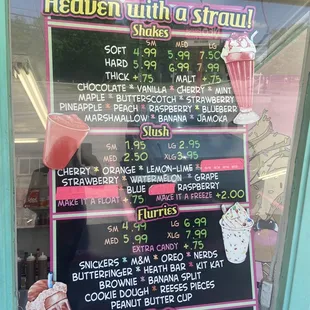 Heaven with a straw!
Shakes
SM MED LG
SOFT 4.99 5.99 7.50
HARD 5.99 6.99 7.99
THICK +.75 MALT +.75
CHOCOLATE * VANILLA * CHERRY * MINT
MAPLE * BUTTERSCOTCH * STRAWBERRY
PINEAPPLE * PEACH * RASPBERRY * BLUEBERRY
MARSHMALLOW * BANANA * JAMOKA
Slush
SM 1.95 LG 2.95
MED 2.50 XLG 3.95
CHERRY * ORANGE * LEMON-LIME *
STRAWBERRY * WATERMELON * GRAPE
BLUE RASPBERRY
MAKE IT A FLOAT +.75 MAKE IT A FREEZE +2.00
Flurries
SM 4.99 LG 6.99
MED 5.99 XLG 7.99
EXTRA CANDY +.75
SNICKERS * M&M * OREO * NERDS
BUTTERFINGER * HEATH BAR * KIT KAT
BROWNIE * BANANA SPLIT
COOKIE DOUGH * REESES PIECES
PEANUT BUTTER CUP